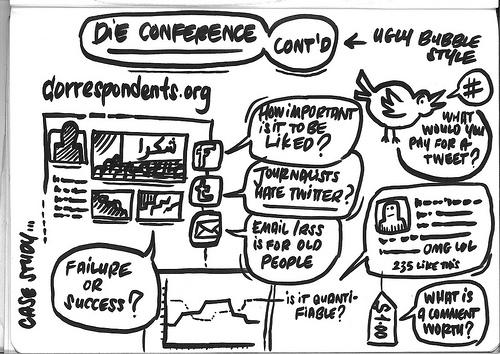 DIE CONFERENCE
CONT'D
← UGLY BUBBLE
STYLE
dorrespondents.org
شكرا
f
t
HOW IMPORTANT
IS IT TO BE
LIKED?
JOURNALISTS
HATE TWITTER?
EMAIL/RSS
IS FOR OLD
PEOPLE
#
WHAT
WOULD YOU
PAY FOR A
TWEET?
OMG LOL
235 LIKE THIS
$1.00
WHAT IS
A COMMENT
WORTH?
CASE STUDY...
FAILURE
OR
SUCCESS?
IS IT QUANTI-
FIABLE?